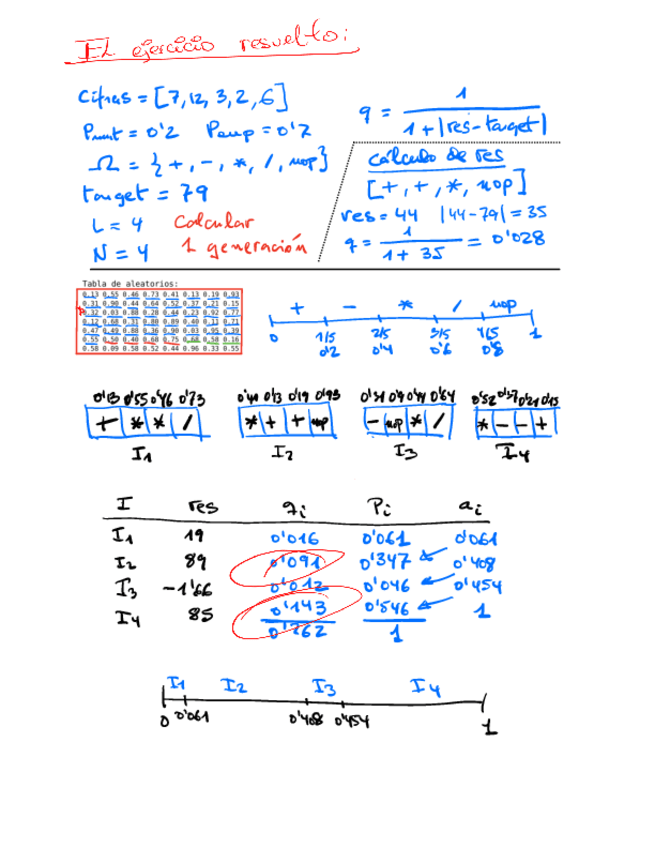 El ejercicio resuelto:
Cifras = [7, 12, 3, 2, 6]
Pmut = 0'2 Pcrup = 0'7
Ω = { +, -, *, /, nop}
target = 79
L = 4 Calcular
N = 4 1 generación
q = 1 / 1 + |res - target|
cálculo de res
[+, +, *, nop]
res = 44 |44 - 79| = 35
q = 1 / 1 + 35 = 0'028
Tabla de aleatorios:
0.13 0.55 0.46 0.73 0.41 0.13 0.19 0.93
0.31 0.90 0.44 0.64 0.52 0.37 0.21 0.15
0.32 0.03 0.88 0.28 0.44 0.23 0.92 0.77
0.12 0.68 0.31 0.80 0.89 0.40 0.11 0.71
0.47 0.49 0.88 0.36 0.90 0.03 0.95 0.39
0.55 0.50 0.40 0.68 0.75 0.68 0.58 0.16
0.58 0.09 0.58 0.52 0.44 0.96 0.33 0.55
+ - * / nop
0 1/5 2/5 3/5 4/5 1
0'2 0'4 0'6 0'8
0'13 0'55 0'46 0'73
+ * * /
I1
0'41 0'13 0'19 0'93
* + + nop
I2
0'31 0'9 0'44 0'64
- nop * /
I3
0'52 0'37 0'21 0'15
* - - +
I4
I res qi Pi ai
I1 19 0'016 0'061 0'061
I2 89 0'091 0'347 0'408
I3 -1'66 0'012 0'046 0'454
I4 85 0'143 0'546 1
0'262 1
I1 I2 I3 I4
0 0'061 0'408 0'454 1